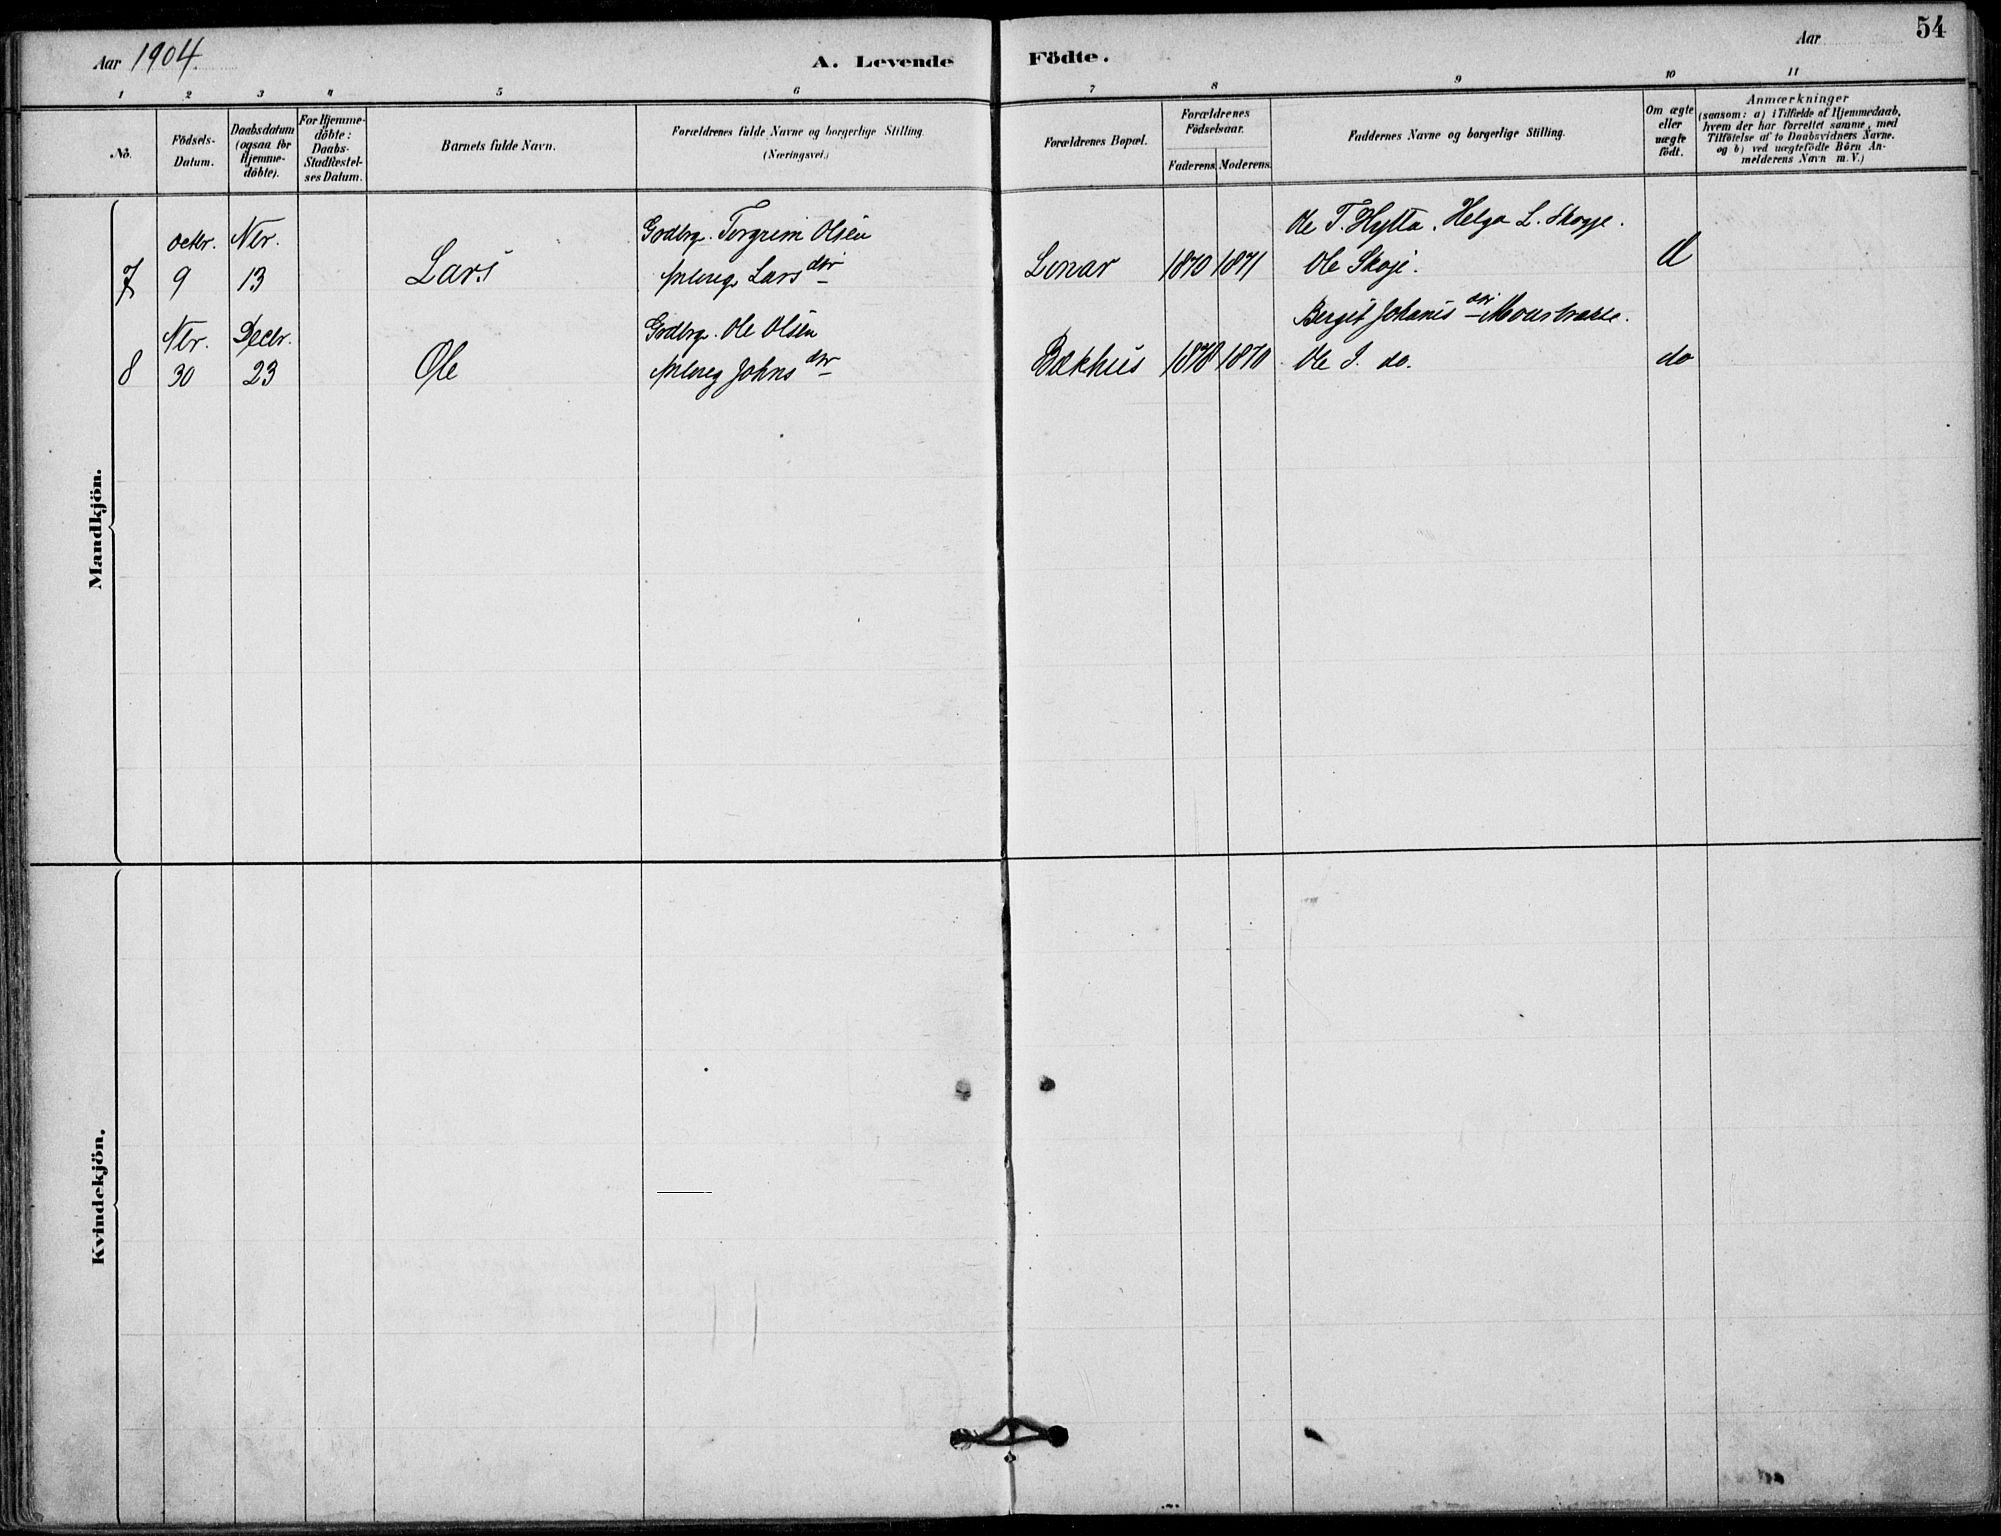 Aar 1904. A. Levende Födte. Aar 54
1 2 3 4 5 6 7 8 9 10 11
No.
Födsels-
Datum.
Daabsdatum
(ogsaa for
Hjemme-
döbte).
For Hjemme-
döbte:
Daabs-
Stadfæstel-
ses Datum.
Barnets fulde Navn.
Forældrenes fulde Navne og borgerlige Stilling.
(Næringsvei.)
Forældrenes Bopæl.
Forældrenes
Födselsaar.
Faderens Moderens
Faddernes Navne og borgerlige Stilling.
Om ægte
eller
uægte
födt.
Anmærkninger
(saasom: a) i Tilfælde af Hjemmedaab,
hvem der har forrettet samme, med
Tilföielse af to Daabsvidners Navne.
og b) ved uægtefödte Börn An-
melderens Navn m. V.)
Mandkjön.
Octbr. Nbr. Gadbrg. Torgrim Olsen Ole T. Hytta. Helga L. Skoge.
7 9 13 Lars Lars dtr 1870 1871 Ole Skoje.
Nbr. Decbr. Gadbrg. Ole Olsen Bergit Johanis dtr
8 30 23 Ole Johns dtr Bakhus 1870 Ole do. do
Kvindekjön.